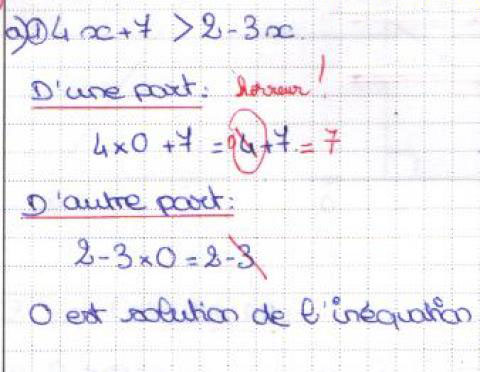 a) ① 4x+7 > 2-3x
D'une part: horreur!
4×0 +7 = 0 4+7 = 7
D'autre part:
2-3×0 = 2-3
0 est solution de l'inéquation